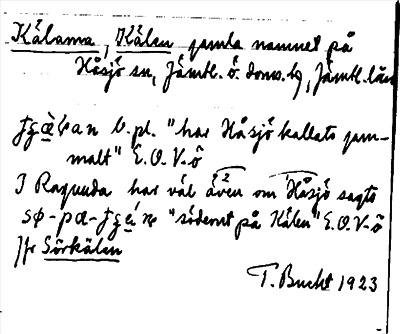 Kälarna, Kälen gamla namnet på
Håsjö sn, Jämtl. ö. doms. tg, Jämtl. län
b. pl. "har Håsjö kallats gam-
malt" E.O. V-ö
I Ragunda har väl även om Håsjö sagts
"söderut på Kälen" E.O. V-ö
Jfr Sörkälen
T. Bucht 1923